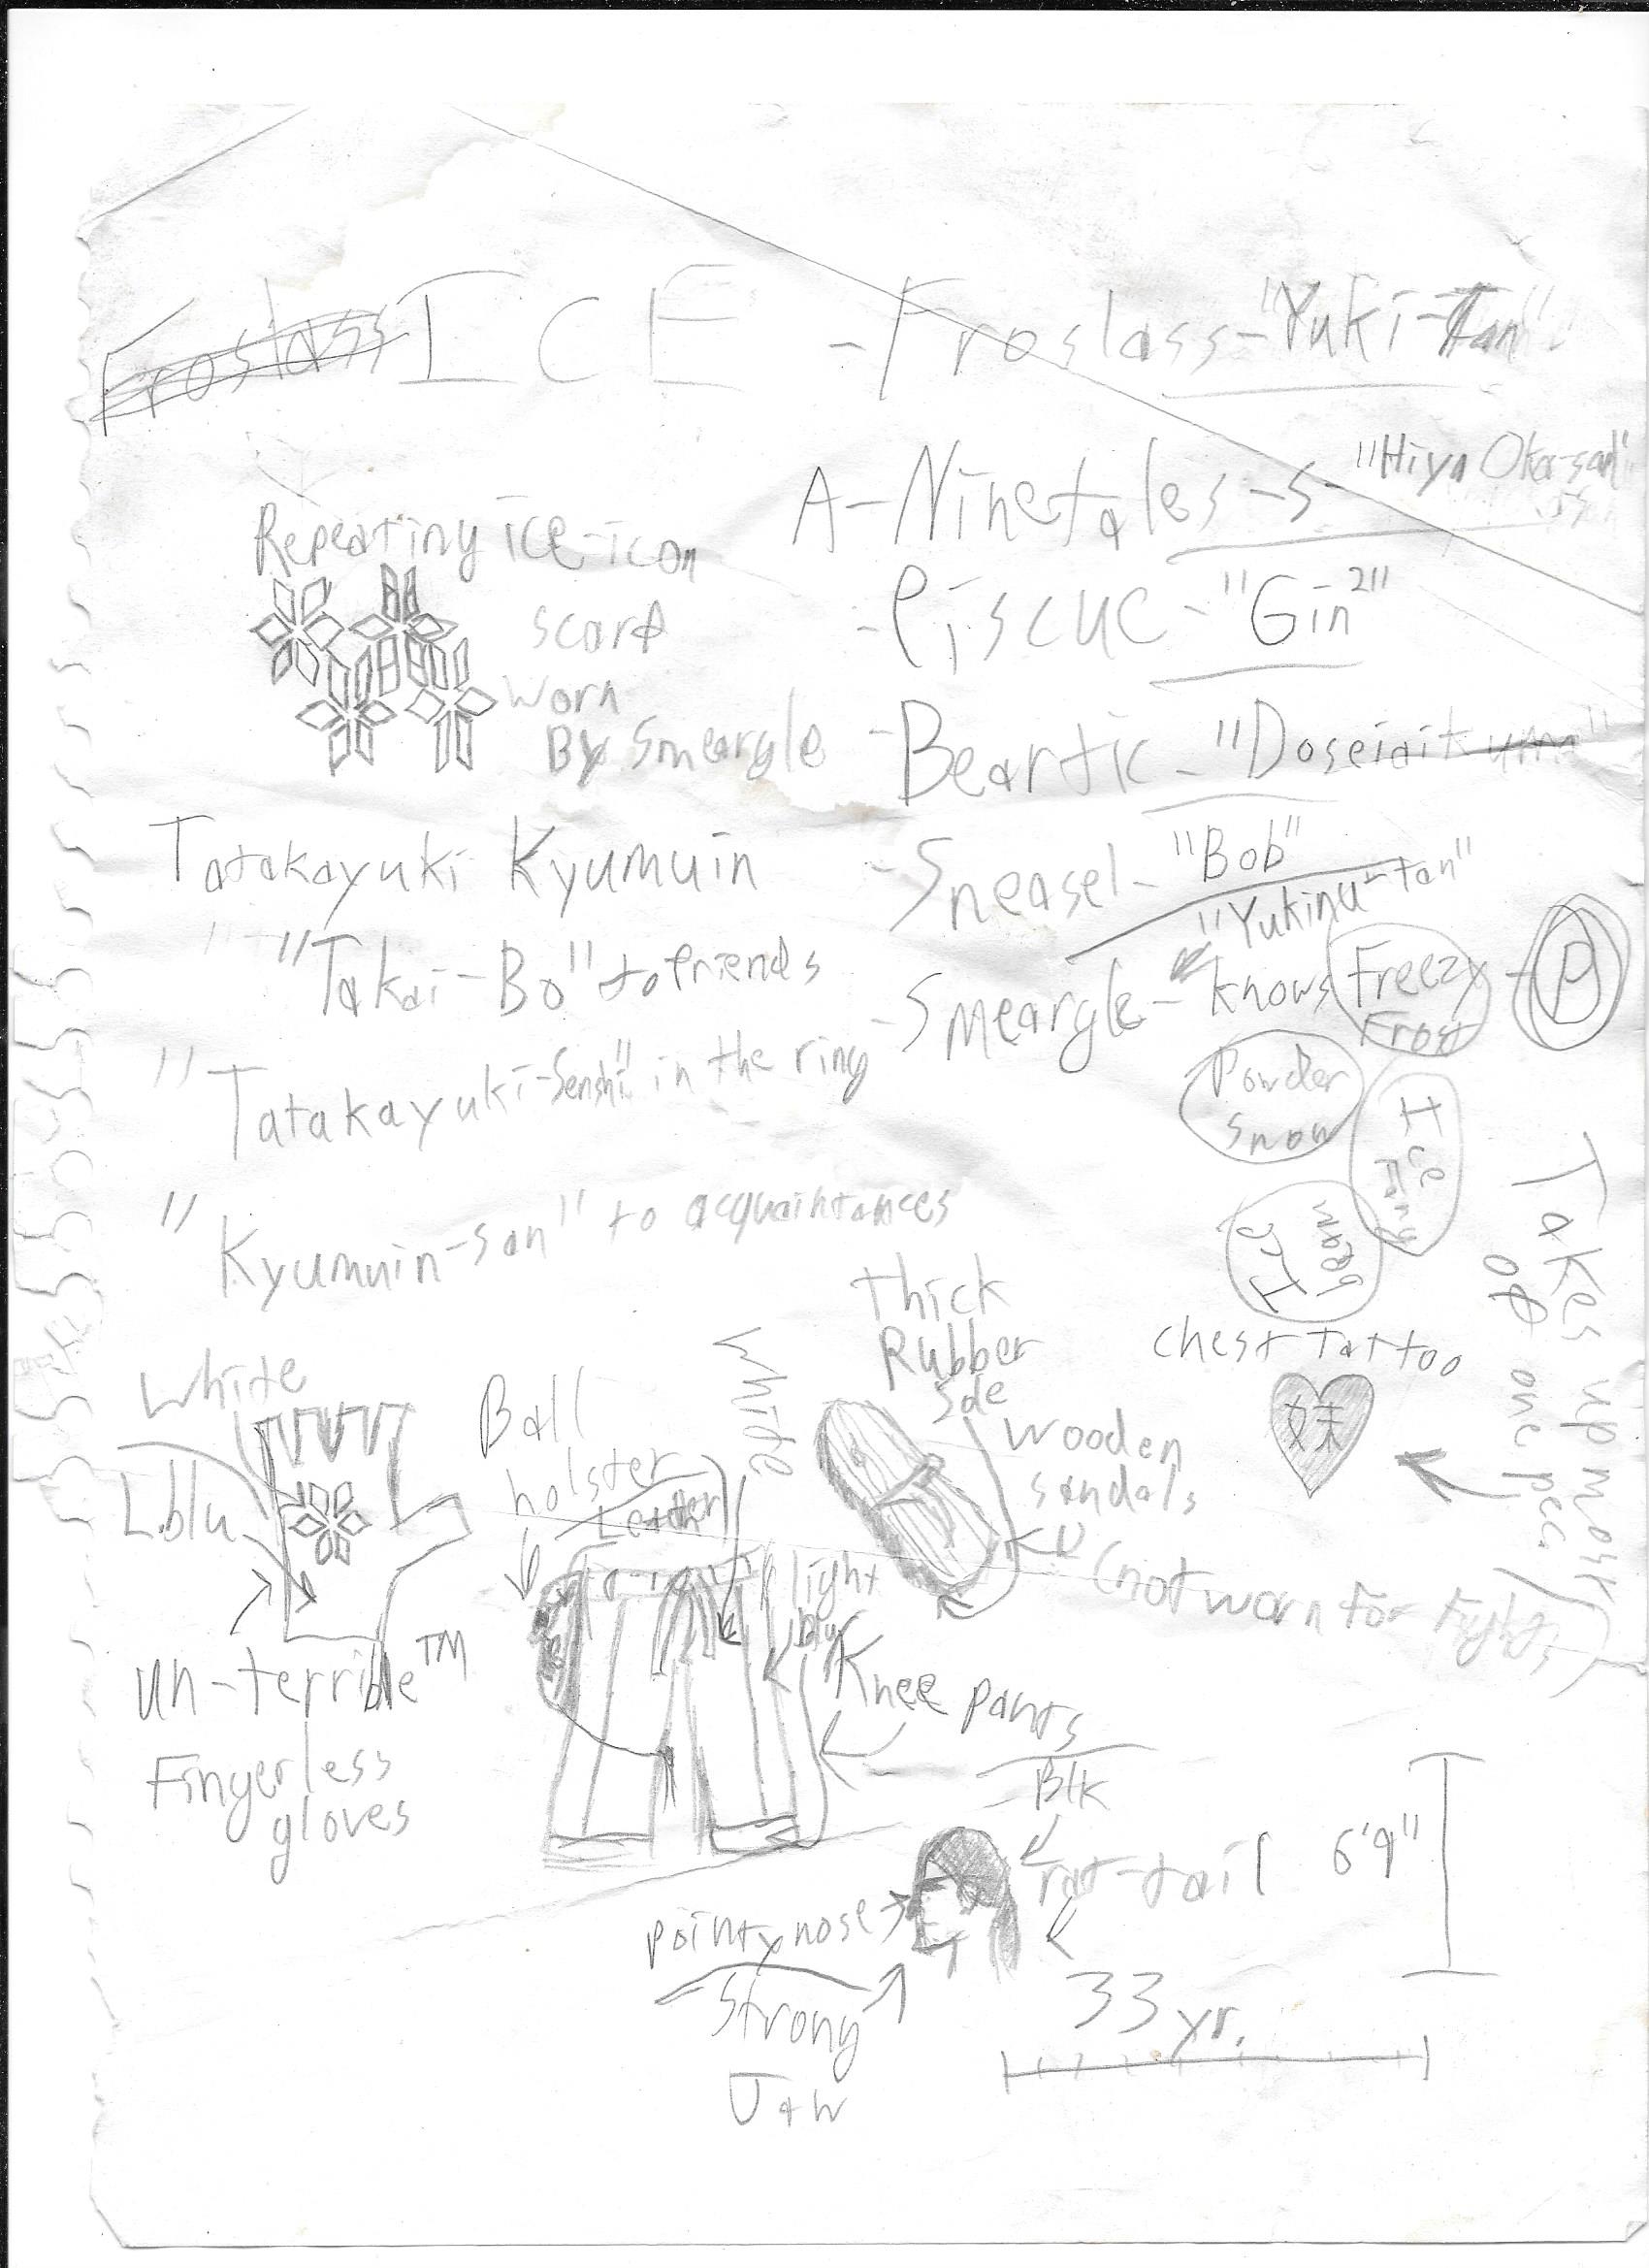 Froslass ICE - Froslass - "Yuki-tan"
A-Ninetales-s- "Hiya Oka-san"
Repeating ice-icon
scarf
worn
By Smeargle
- Piscuc - "Gin²"
- Beartic - "Doseiaitkuma"
Tatakayuki Kyumuin
- Sneasel - "Bob"
"Takai-Bo" to friends
"Yukinu-tan"
- Smeargle - knows Freezy Frost - P
Powder Snow
Ice Fang
Ice beam
"Tatakayuki-Senshi" in the ring
"Kyumuin-san" to acquaintances
Takes up most
of one pec
chest tattoo
妹
White
L.blu
un-terrible™
Fingerless
gloves
Ball
holster
Leather
White
light
blu
Knee pants
Thick
Rubber
Sole
wooden
sandals
(not worn for fights)
Blk
rat-tail
6'9"
pointy nose
Strong
Jaw
33 yr.